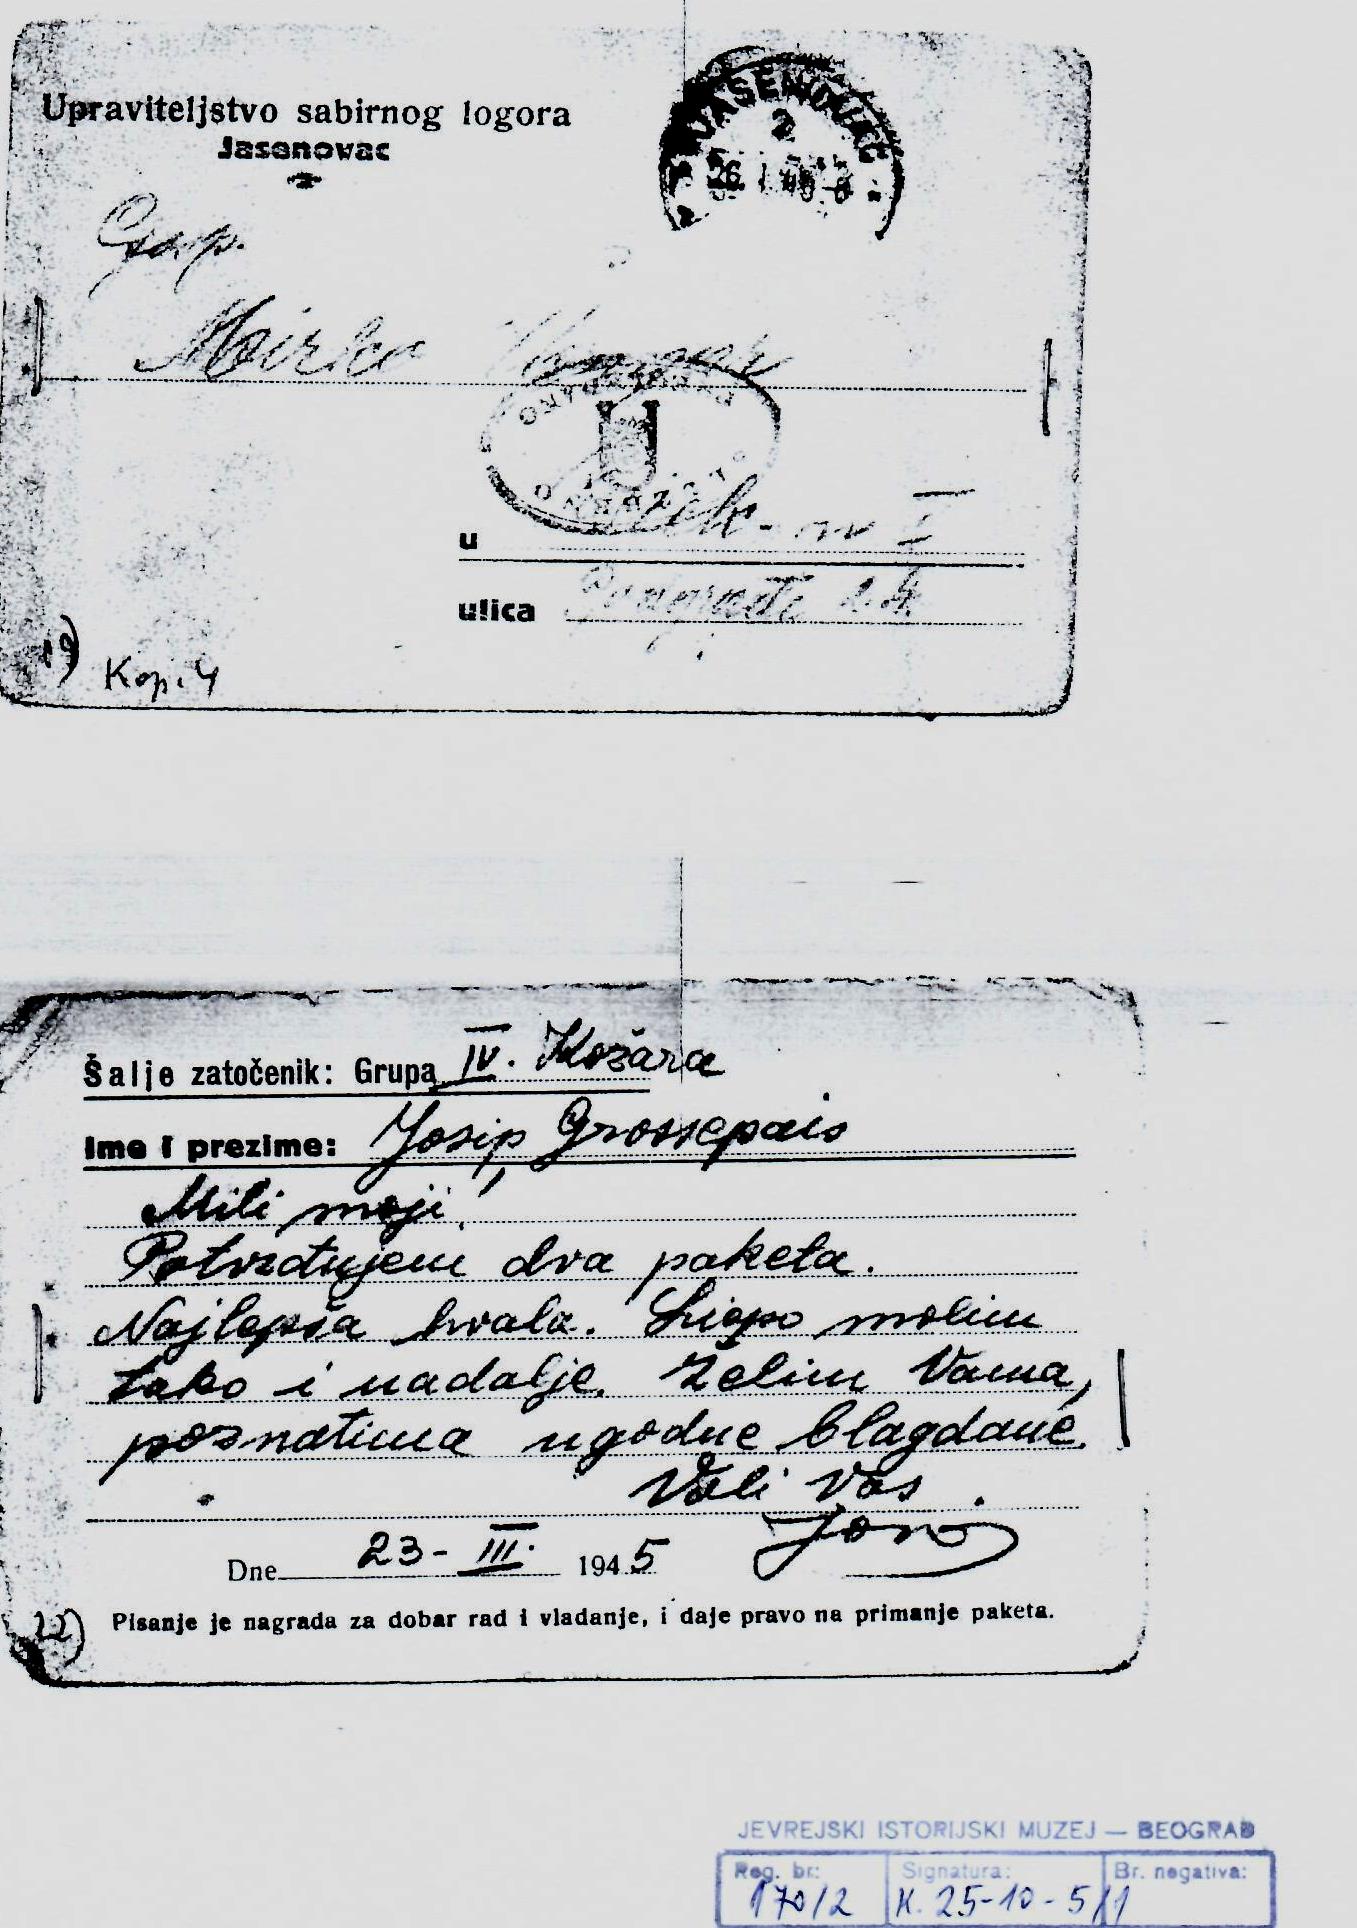 Upraviteljstvo sabirnog logora
Jasenovac
JASENOVAC
2
26.
Gosp.
Mirko
U
u
ulica
19)
Kop. 4
Šalje zatočenik: Grupa IV. Kožara
Ime i prezime: Josip Grossepais
Mili moji!
Potvrđujem dva paketa.
Najlepša hvala. Liepo molim
tako i nadalje. Želim Vama,
poznatima ugodne blagdane.
Voli Vas
Dne 23- III. 1945
Pisanje je nagrada za dobar rad i vladanje, i daje pravo na primanje paketa.
JEVREJSKI ISTORIJSKI MUZEJ — BEOGRAD
Reg. br: Signatura: Br. negativa:
170/2 K. 25-10-5/1